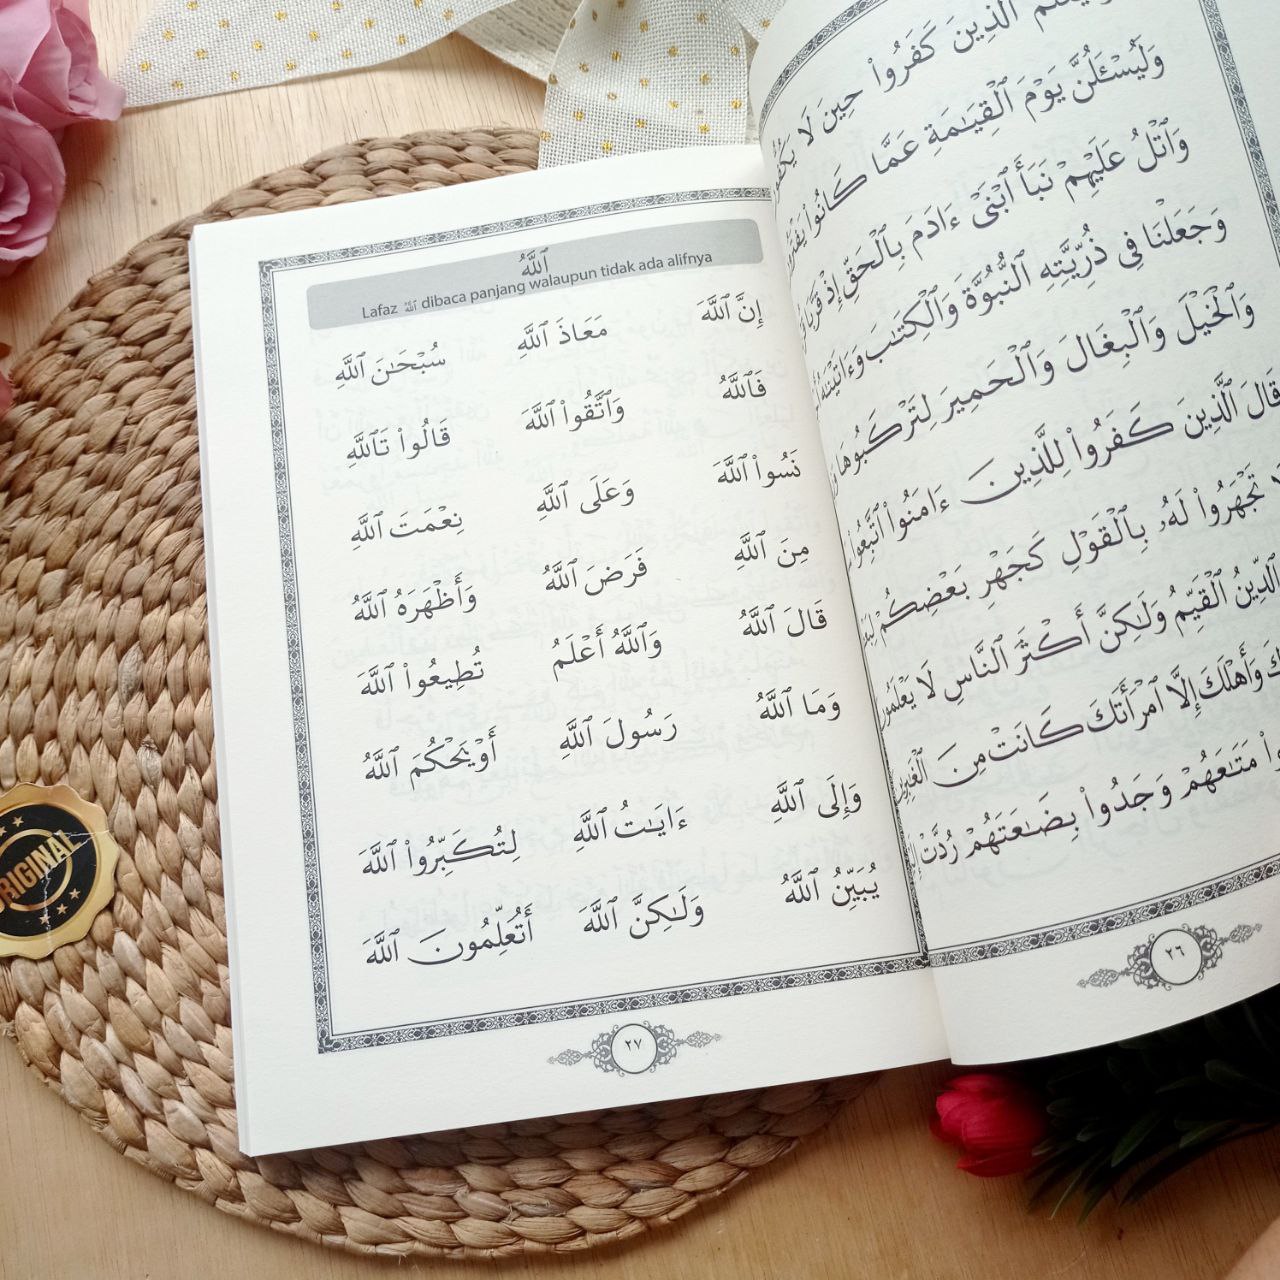 ٱلَّذِينَ كَفَرُوا۟ حِينَ لَا
وَلَيُسْـَٔلُنَّ يَوْمَ ٱلْقِيَـٰمَةِ عَمَّا كَانُوا۟
وَٱتْلُ عَلَيْهِمْ نَبَأَ ٱبْنَىْ ءَادَمَ بِٱلْحَقِّ إِذْ
وَجَعَلْنَا فِى ذُرِّيَّتِهِ ٱلنُّبُوَّةَ وَٱلْكِتَـٰبَ
وَٱلْخَيْلَ وَٱلْبِغَالَ وَٱلْحَمِيرَ لِتَرْكَبُوهَا
قَالَ ٱلَّذِينَ كَفَرُوا۟ لِلَّذِينَ ءَامَنُوا۟ ٱتَّبِعُوا۟
تَجْهَرُوا۟ لَهُۥ بِٱلْقَوْلِ كَجَهْرِ بَعْضِكُمْ
ٱلدِّينُ ٱلْقَيِّمُ وَلَـٰكِنَّ أَكْثَرَ ٱلنَّاسِ لَا
وَأَهْلَكَ إِلَّا ٱمْرَأَتَكَ كَانَتْ مِنَ
مَتَـٰعَهُمْ وَجَدُوا۟ بِضَـٰعَتَهُمْ رُدَّتْ
٢٦
ٱللَّهُ
Lafaz ٱللَّهُ dibaca panjang walaupun tidak ada alifnya
إِنَّ ٱللَّهَ مَعَاذَ ٱللَّهِ سُبْحَـٰنَ ٱللَّهِ
فَٱللَّهُ وَٱتَّقُوا۟ ٱللَّهَ قَالُوا۟ تَٱللَّهِ
نَسُوا۟ ٱللَّهَ وَعَلَى ٱللَّهِ نِعْمَتَ ٱللَّهِ
مِنَ ٱللَّهِ فَرَضَ ٱللَّهُ وَأَظْهَرَهُ ٱللَّهُ
قَالَ ٱللَّهُ وَٱللَّهُ أَعْلَمُ تُطِيعُوا۟ ٱللَّهَ
وَمَا ٱللَّهُ رَسُولَ ٱللَّهِ أَوْ يَحْكُمَ ٱللَّهُ
وَإِلَى ٱللَّهِ ءَايَـٰتُ ٱللَّهِ لِتُكَبِّرُوا۟ ٱللَّهَ
يُبَيِّنُ ٱللَّهُ وَلَـٰكِنَّ ٱللَّهَ أَتُعَلِّمُونَ ٱللَّهَ
٢٧
ORIGINAL